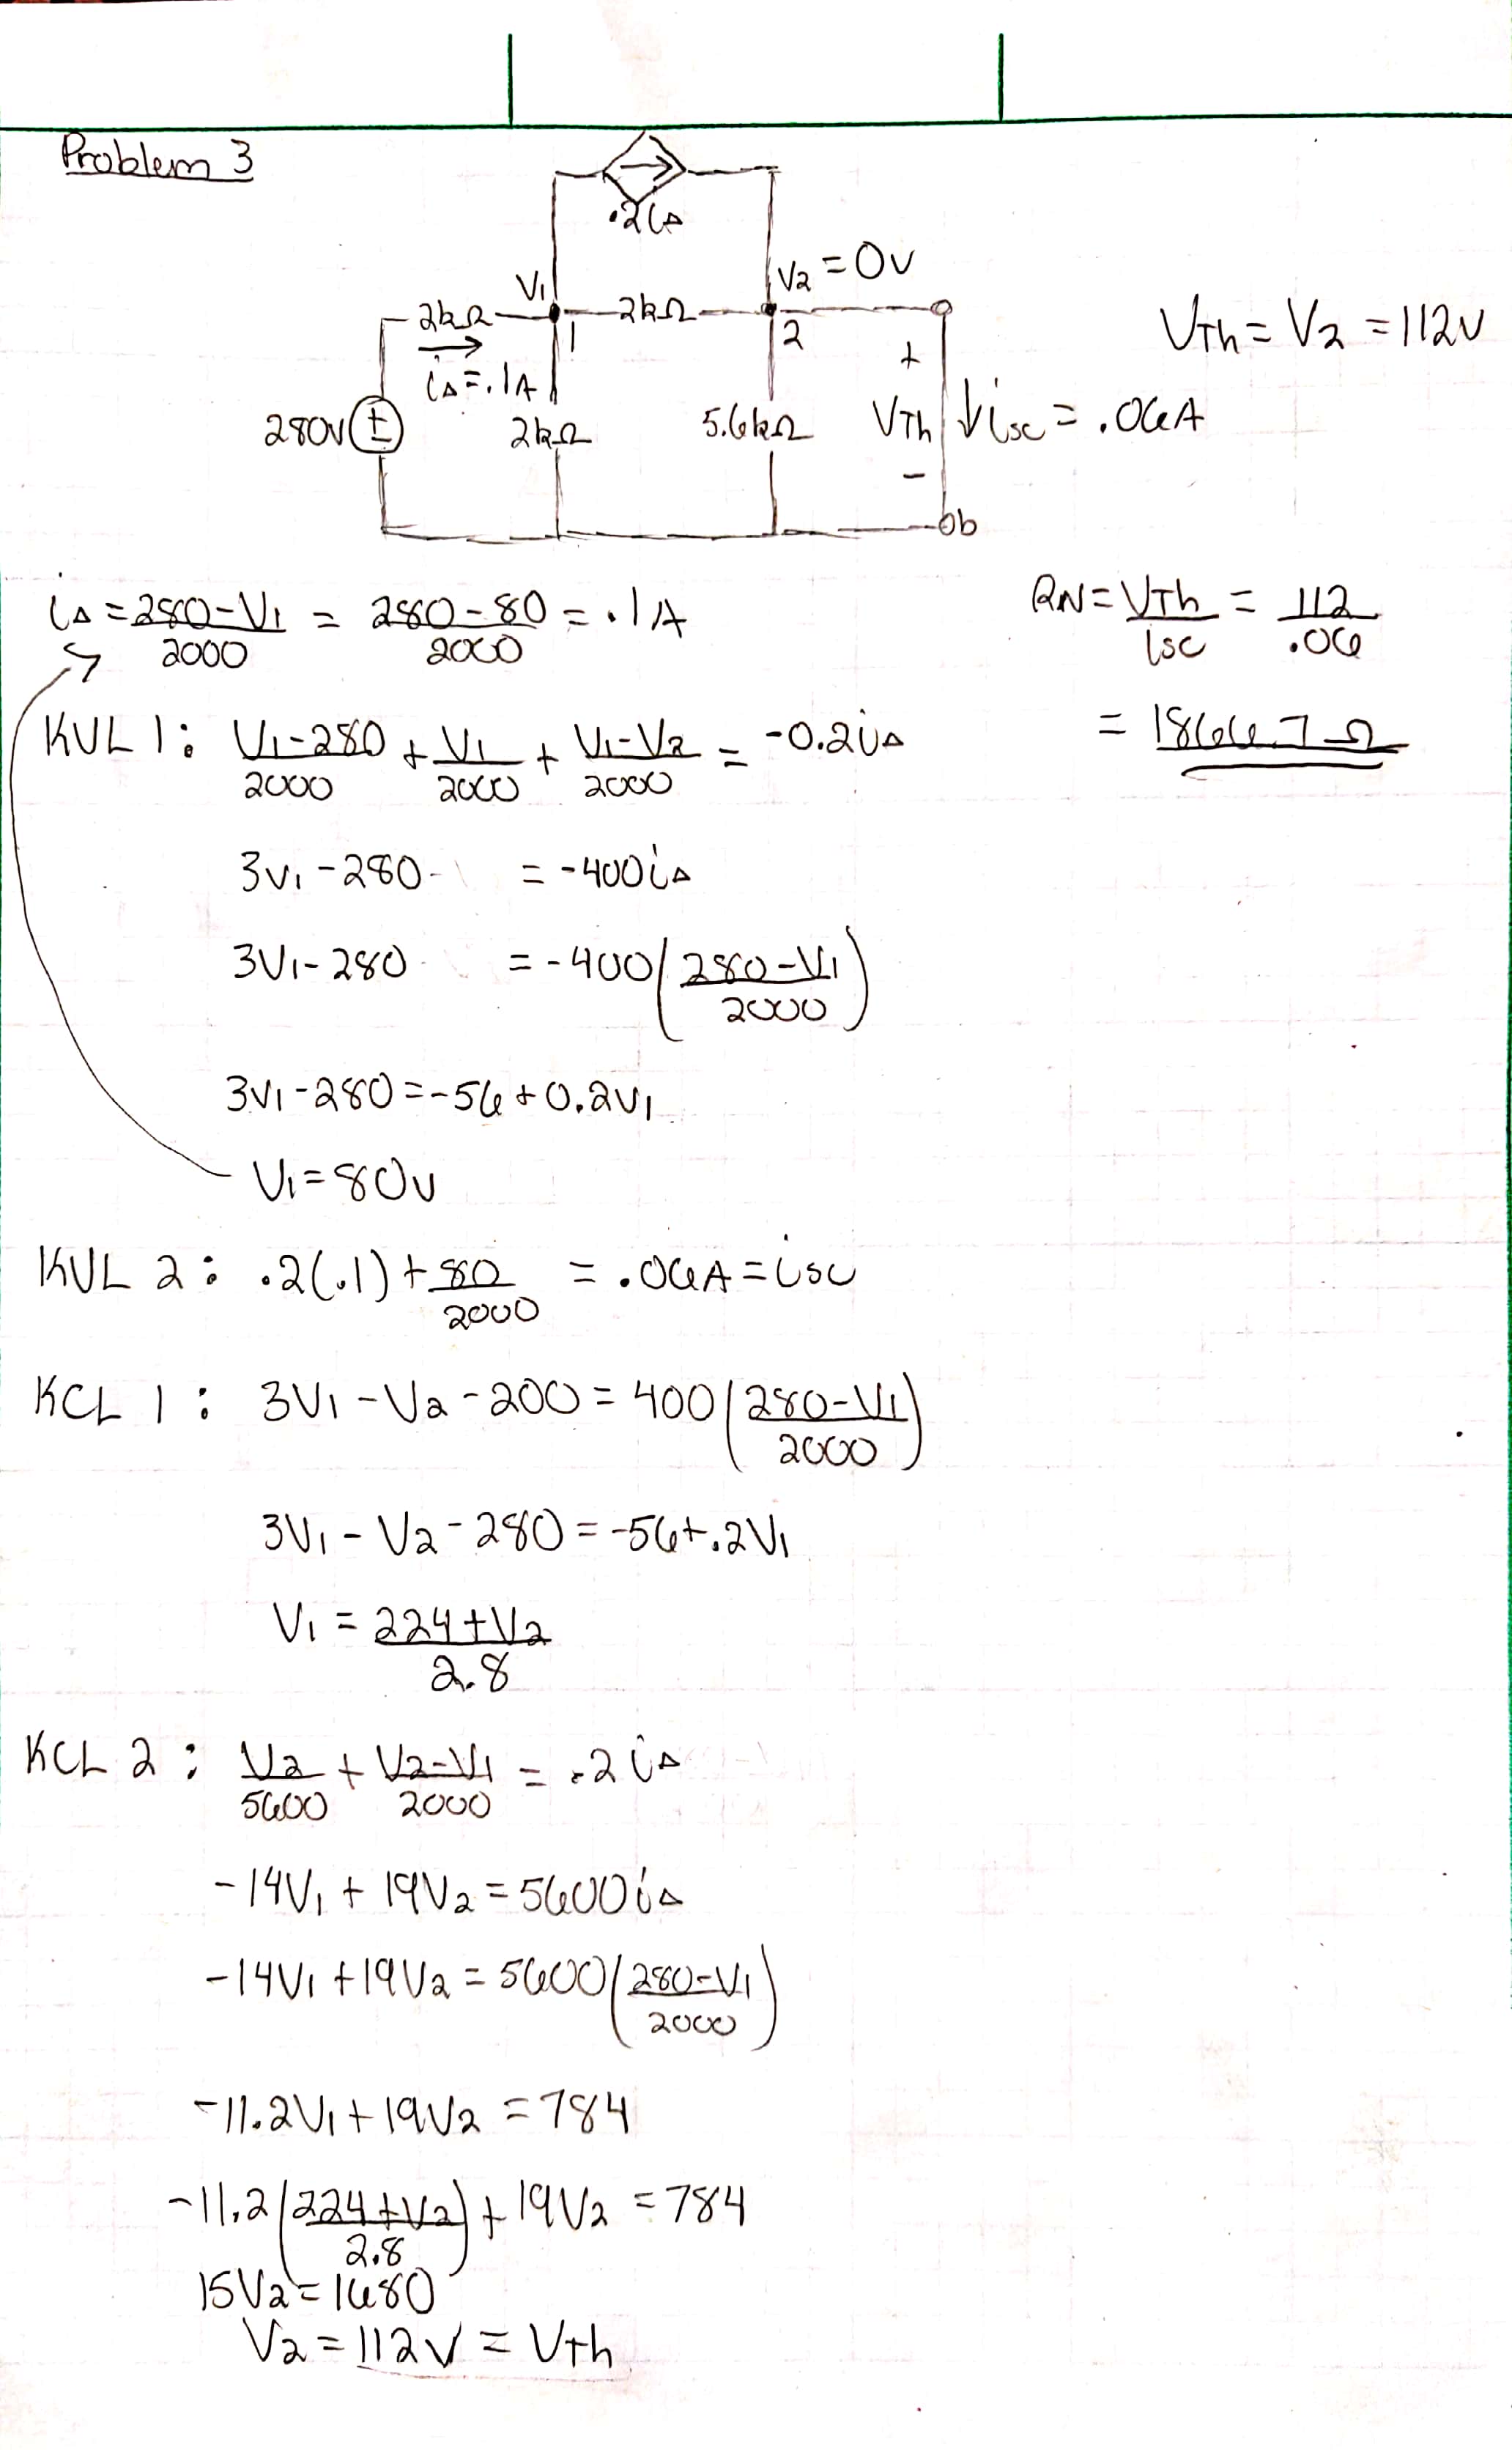 Problem 3
.2i∆
V1
V2 = 0V
2kΩ
2kΩ
1
2
VTh = V2 = 112V
i∆ = .1A
+
280V
2kΩ
5.6kΩ
VTh
isc = .06A
-
b
i∆ = 280-V1/2000 = 280-80/2000 = .1A
RN = VTh/isc = 112/.06
= 1866.7Ω
KVL 1: V1-280/2000 + V1/2000 + V1-V2/2000 = -0.2i∆
3V1 - 280 = -400i∆
3V1 - 280 = -400(280-V1/2000)
3V1 - 280 = -56 + 0.2V1
V1 = 80V
KVL 2: .2(.1) + 80/2000 = .06A = isc
KCL 1: 3V1 - V2 - 200 = 400(280-V1/2000)
3V1 - V2 - 280 = -56 + .2V1
V1 = 224+V2/2.8
KCL 2: V2/5600 + V2-V1/2000 = .2i∆
-14V1 + 19V2 = 5600i∆
-14V1 + 19V2 = 5600(280-V1/2000)
-11.2V1 + 19V2 = 784
-11.2(224+V2/2.8) + 19V2 = 784
15V2 = 1680
V2 = 112V = VTh